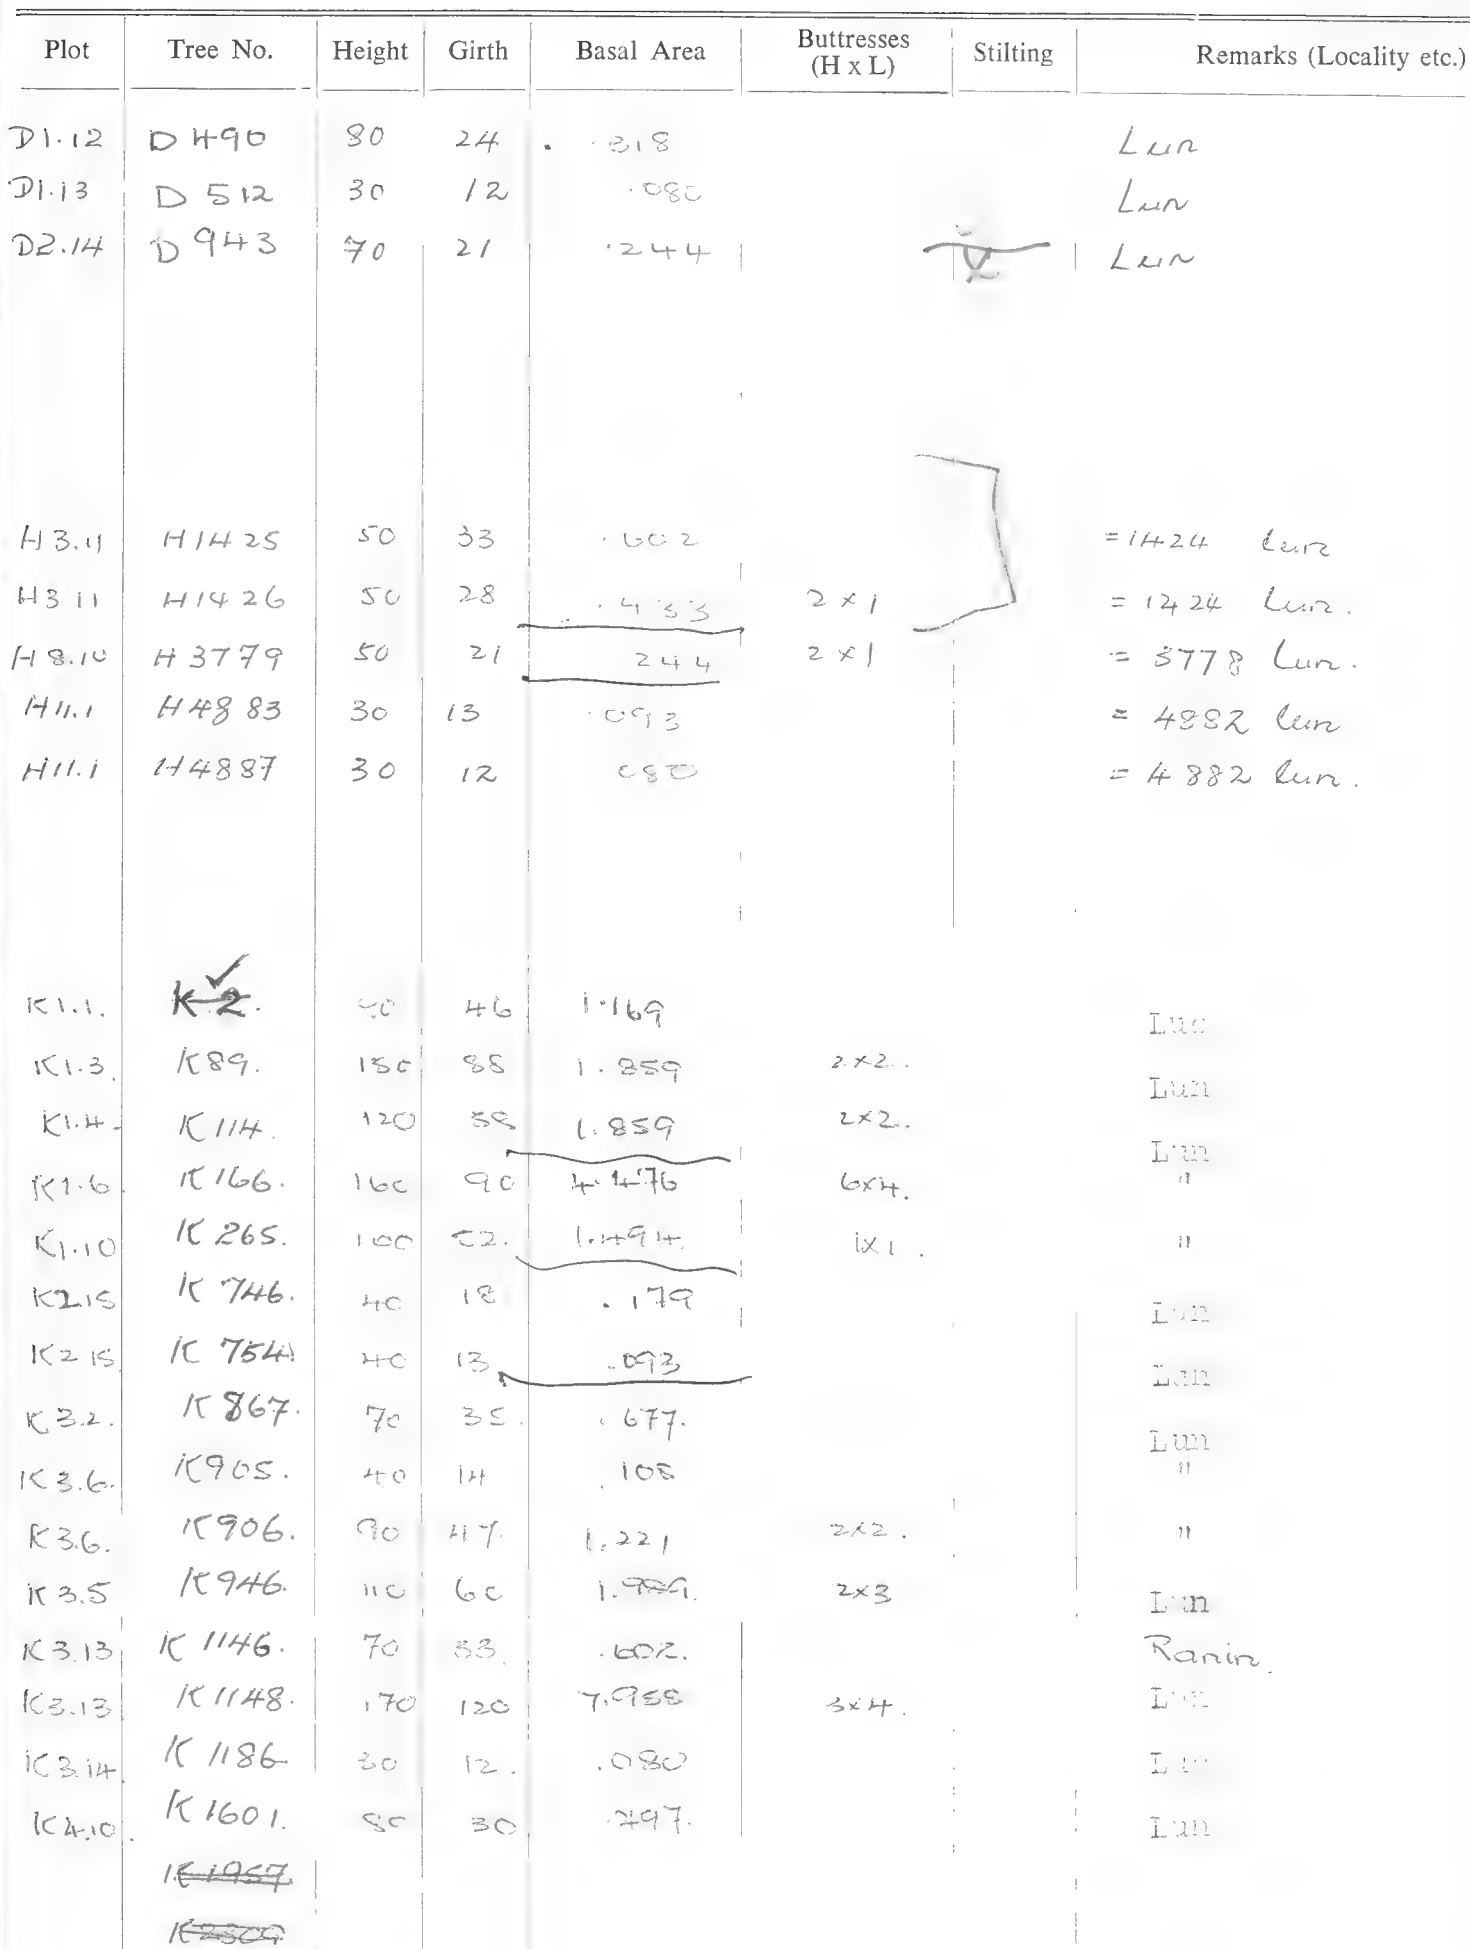 Plot Tree No. Height Girth Basal Area Buttresses (H x L) Stilting Remarks (Locality etc.)
D1.12 D 490 80 24 .318 Lun
D1.13 D 512 30 12 .080 Lun
D2.14 D 943 70 21 .244 Lun
H3.11 H1425 50 33 .602 = 1424 Lun
H3 11 H1426 50 28 .433 2 x 1 = 1424 Lun.
H8.10 H3779 50 21 244 2 x 1 = 3778 Lun.
H11.1 H4883 30 13 .093 = 4882 Lun
H11.1 H4887 30 12 080 = 4882 Lun.
K1.1. K 2. 46 1.169 Lun
K1.3. K89. 1.859 2x2. Lun
K1.4. K114. 120 58 1.859 2x2. Lun
K1.6 K166. 160 90 4.476 6x4. "
K1.10 K 265. 100 52. 1.494. 1x1. "
K2.15 K 746. 40 18 .179 Lun
K2 15. K 754. 40 13. .093 Lun
K3.2. K 867. 70 35. .677. Lun
K3.6. K905. 40 14 .108 "
K3.6. K906. 90 47. 1.221 2x2. "
K3.5 K946. 110 60 1.989. 2x3 Lun
K3.13 K 1146. 70 33. .602. Ranin.
K3.13 K 1148. 170 120 7.958 3x4. Lun
K3.14. K 1186 30 12. .080 Lun
K4.10. K 1601. 80 30 .497. Lun
K 1957